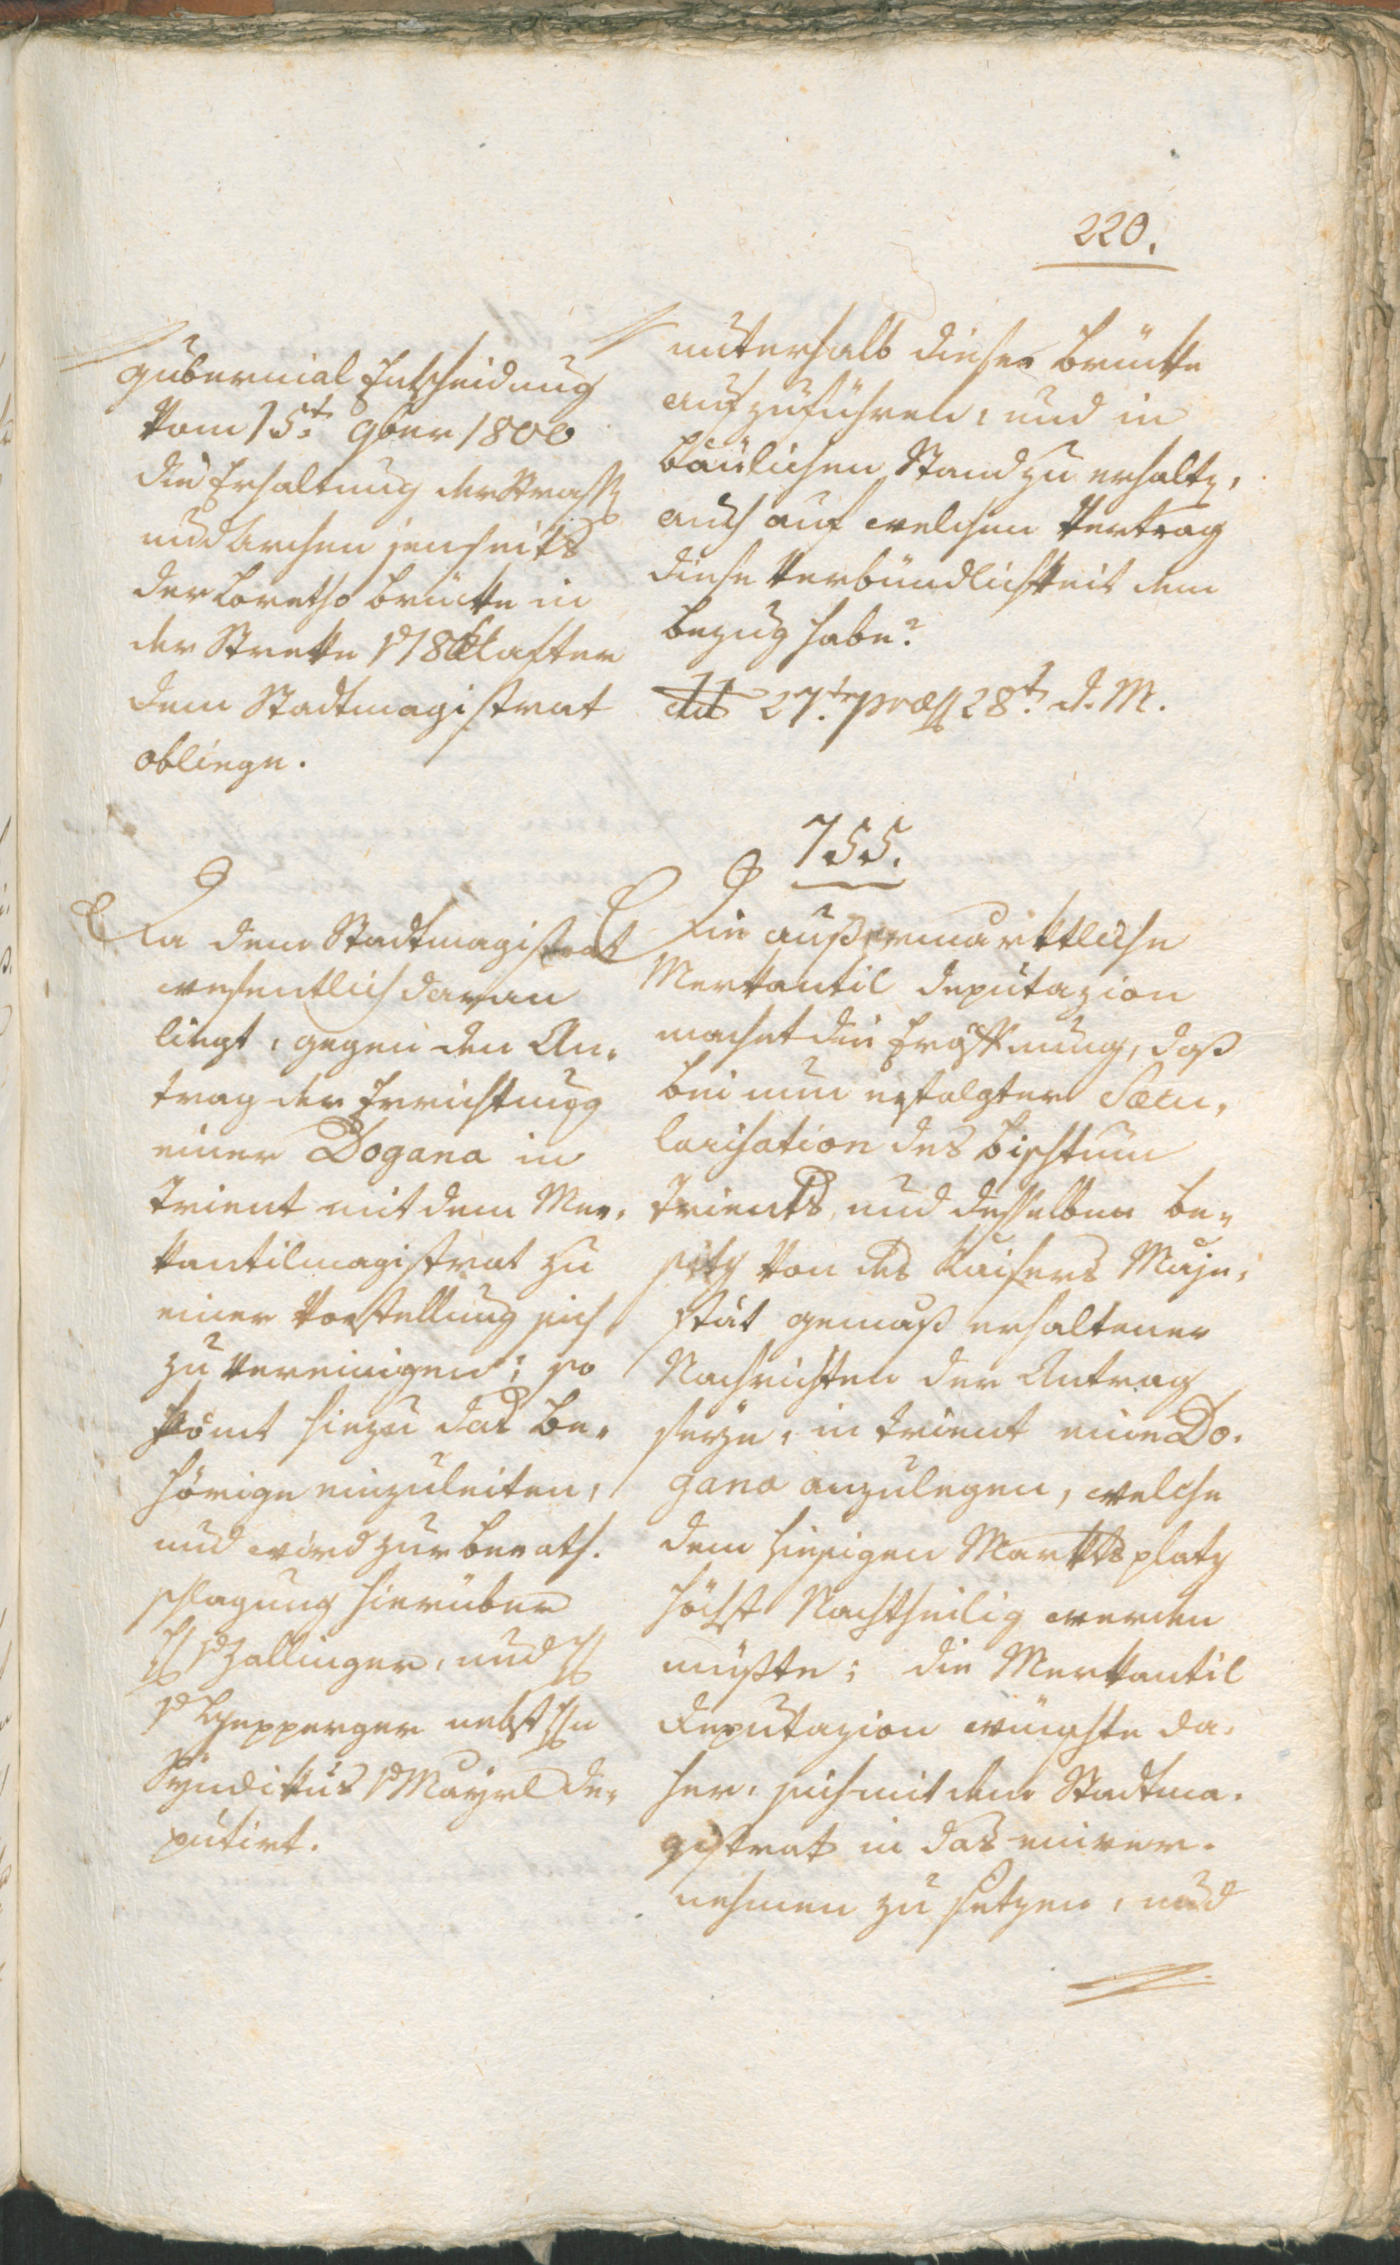 220.
Gubernial Entscheidung
vom 15t. 9ber 1800
die Erhaltung der Straß
und Archen jenseits
der Loretho Brücke in
der Strecke 718 Klafter
dem Stadtmagistrat
obliege.
unterhalb dieser Brücke
aufzuführen, und in
baulichen Stand zu erhalten,
auch auf welchen Vertrag
diese Verbündlichkeit den
Bezug habe?
dto 27t. præs 28t. d. M.
755.
Da dem Stadtmagistrat
wesentlich daran
liegt, gegen den An-
trag der Errichtung
einer Dogana in
Trient mit dem Mer-
kantilmagistrat zu
einer Vorstellung sich
zu vereinigen; so
kömt hiezu das Be-
hörige einzuleiten,
und wird zur Berath-
schlagung hierüber
H v Zallinger, und H
v Tschepperger nebst Hn
Syndikus v Mayrl de-
putirt.
Die außermärktliche
Merkantil Deputazion
machet die Eröffnung, daß
bei nun erfolgter Secu-
larisation des Bisthum
Trients, und desselben Be-
sitz von des Kaisers Maje-
stät gemäß erhaltener
Nachrichten der Antrag
seye, in Trient eine Do-
gana anzulegen, welche
dem hiesigen Marktsplatz
höchst Nachtheilig werden
müßte; die Merkantil
Deputazion wünschte da-
her, sich mit dem Stadtma-
gistrat in das einver-
nehmen zu setzen, und